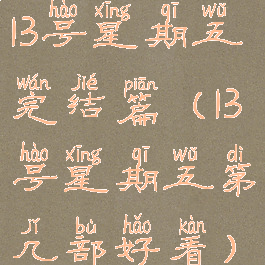 hào xīng qī wǔ
13号星期五
wán jié piān
完结篇(13
hào xīng qī wǔ dì
号星期五第
jǐ bù hǎo kàn
几部好看)